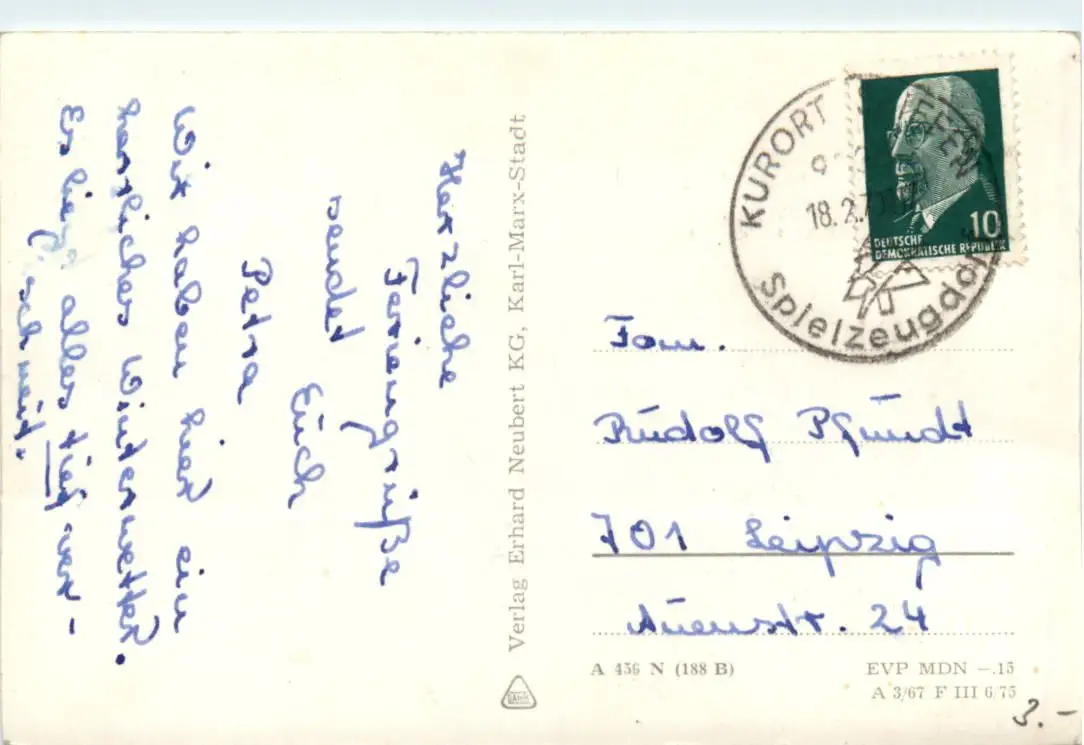 Herzliche
Feriengrüße
sendet Euch
Petra
Wir haben hier ein
herrliches Winterwetter.
Es liegt alles tief ver-
schneit.
Verlag Erhard Neubert KG, Karl-Marx-Stadt
KURORT
18.2.7
Spielzeugdorf
10
DEUTSCHE
DEMOKRATISCHE REPUBLIK
Fam.
Rudolf Pfundt
701 Leipzig
Auenstr. 24
A 456 N (188 B)
EVP MDN –.15
A 3/67 F III 6/75
3.-